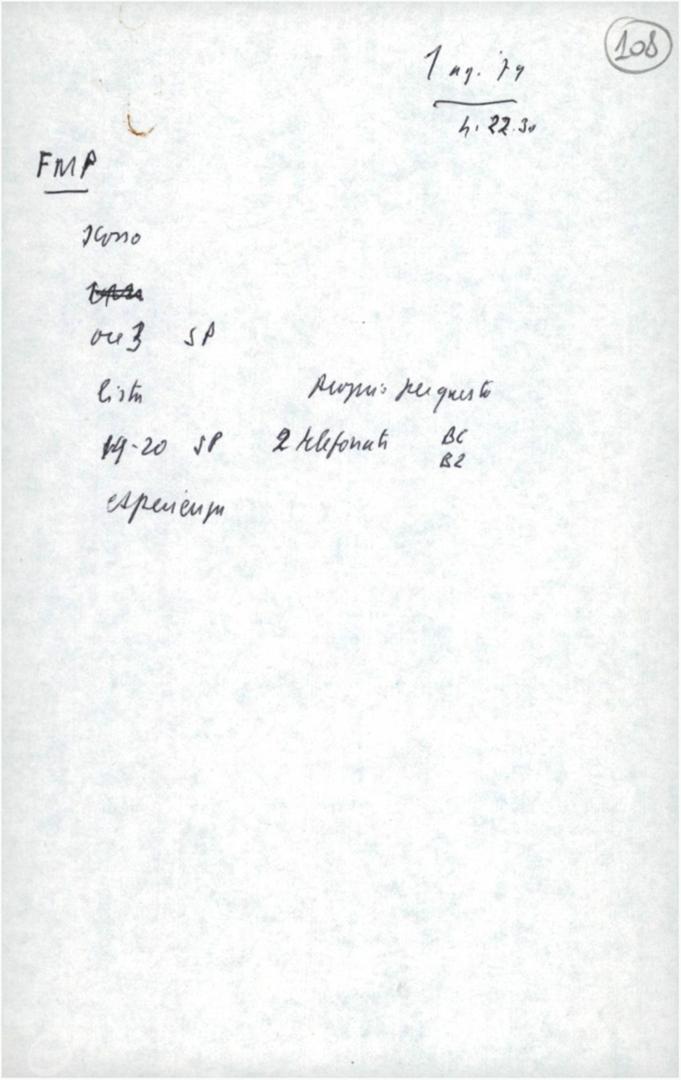 108
1 ag. 79
h. 22.30
FMP
scorso
ore 3 SP
lista proprio per questo
19-20 SP 2 telefonate BC
B2
esperienza